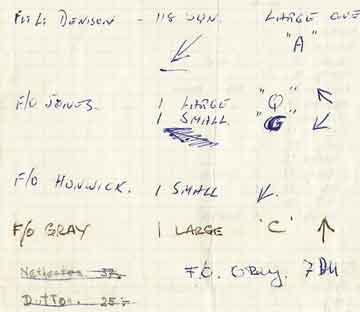 Flt Lt DENISON - 118 SQN. LARGE ONE
"A"
F/O JONES. 1 LARGE "Q"
1 SMALL "G"
F/O HONWICK. 1 SMALL
F/O GRAY 1 LARGE 'C'
F.O. GRAY.
Dutton. 25